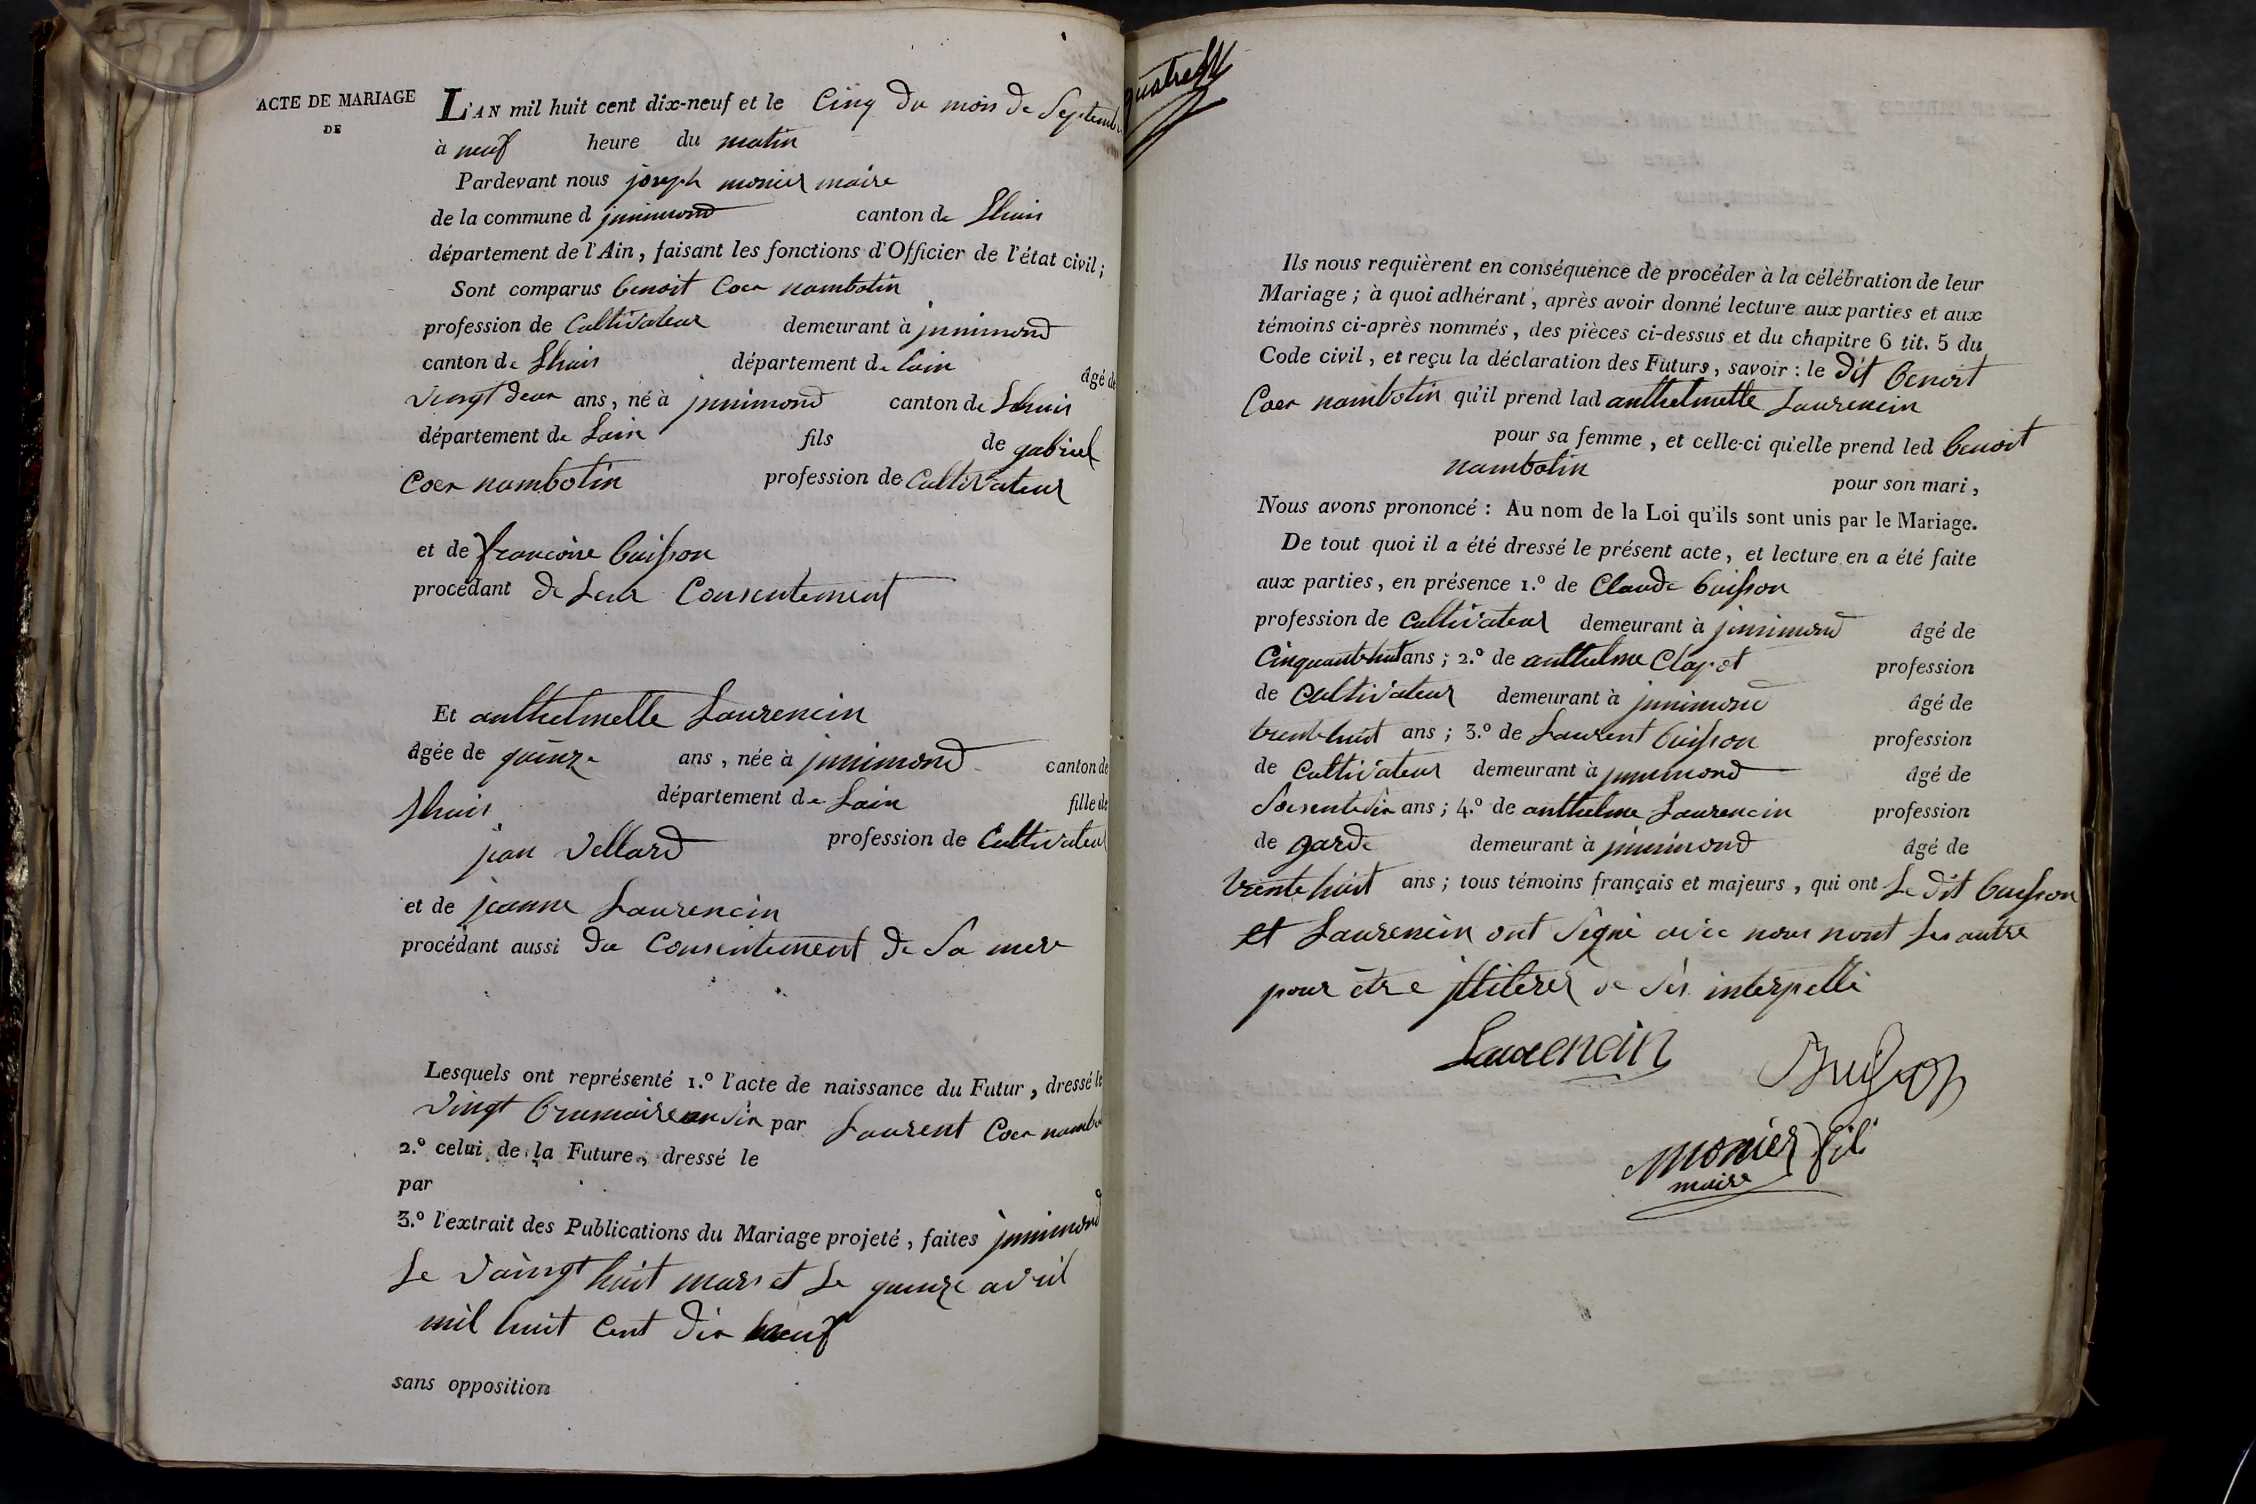 ACTE DE MARIAGE
DE
L'AN mil huit cent dix-neuf et le Cinq du mois de Septembre
à neuf heure du matin
Pardevant nous joseph monier maire
de la commune d junimond canton de Lhuis
département de l'Ain, faisant les fonctions d'Officier de l'état civil;
Sont comparus benoit Coer nambotin
profession de Cultivateur demeurant à junimond
canton de Lhuis département de lain âgé de
vingt deux ans, né à junimond canton de Lhuis
département de Lain fils de gabriel
Coer nambotin profession de Cultivateur
et de françoise buisson
procédant de Leur Consentement
Et anthelmette Laurencin
âgée de quinze ans, née à junimond canton de
Lhuis département de Lain fille de
jean vellard profession de Cultivateur
et de jeanne Laurencin
procédant aussi du Consentement de Sa mere
Lesquels ont représenté 1.º l'acte de naissance du Futur, dressé le
vingt brumaire an six par Laurent Coer nambo
2.º celui de la Future, dressé le
par
3.º l'extrait des Publications du Mariage projeté, faites junimond
Le vaingt huit mars et Le quinze avril
mil huit Cent dix neuf
sans opposition
quatre
Ils nous requièrent en conséquence de procéder à la célébration de leur
Mariage; à quoi adhérant, après avoir donné lecture aux parties et aux
témoins ci-après nommés, des pièces ci-dessus et du chapitre 6 tit. 5 du
Code civil, et reçu la déclaration des Futurs, savoir: le dit benoit
Coer nambotin qu'il prend lad anthelmette Laurencin
pour sa femme, et celle-ci qu'elle prend led benoit
nambotin pour son mari,
Nous avons prononcé: Au nom de la Loi qu'ils sont unis par le Mariage.
De tout quoi il a été dressé le présent acte, et lecture en a été faite
aux parties, en présence 1.º de Claude buisson
profession de Cultivateur demeurant à junimond âgé de
Cinquante huit ans; 2.º de anthelme Clapot profession
de Cultivateur demeurant à junimond âgé de
trente huit ans; 3.º de Laurent buisson profession
de Cultivateur demeurant à junimond âgé de
Soisente dix ans; 4.º de anthelme Laurencin profession
de garde demeurant à junimond âgé de
trente huit ans; tous témoins français et majeurs, qui ont Le dit buisson
et Laurencin ont signé avec nous nont Les autre
pour être illiterés de ses interpellé
Laurencin
Buisson
monier fils
maire